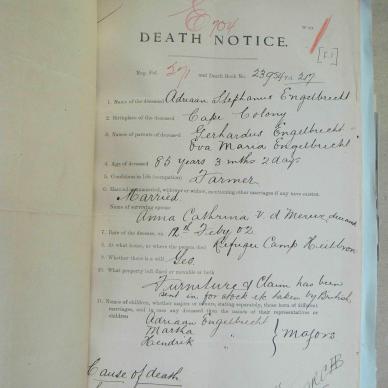 E 704
No
1
DEATH NOTICE.
[F.1]
Reg. Fol. 271 and Death Book No.
1. Name of the deceased Adriaan Stephanus Engelbrecht
2. Birthplace of the deceased Cape Colony
3. Names of parents of deceased Gerhardus Engelbrecht
Eva Maria Engelbrecht
4. Age of deceased 85 years 3 mths 2 days
5. Conditions in life (occupation) Farmer
6. Married or unmarried, widower or widow, mentioning other marriages if any have existed.
Married
Name of surviving spouse
Anna Cathrina v. d. Merwe, deceased
7. Date of the decease, on 12th Feby 02
8. At what house, or where the person died Refugee Camp Heilbron
9. Whether there is a will Yes.
10. What property left fixed or movable or both
Furniture & Claim has been
sent in for stock &c taken by British
11. Names of children, whether majors or minors, stating separately, those born of different
marriages, and in case any deceased then the names of their representatives or
children
Adriaan Engelbrecht
Martha
Hendrik
} Majors
Cause of death